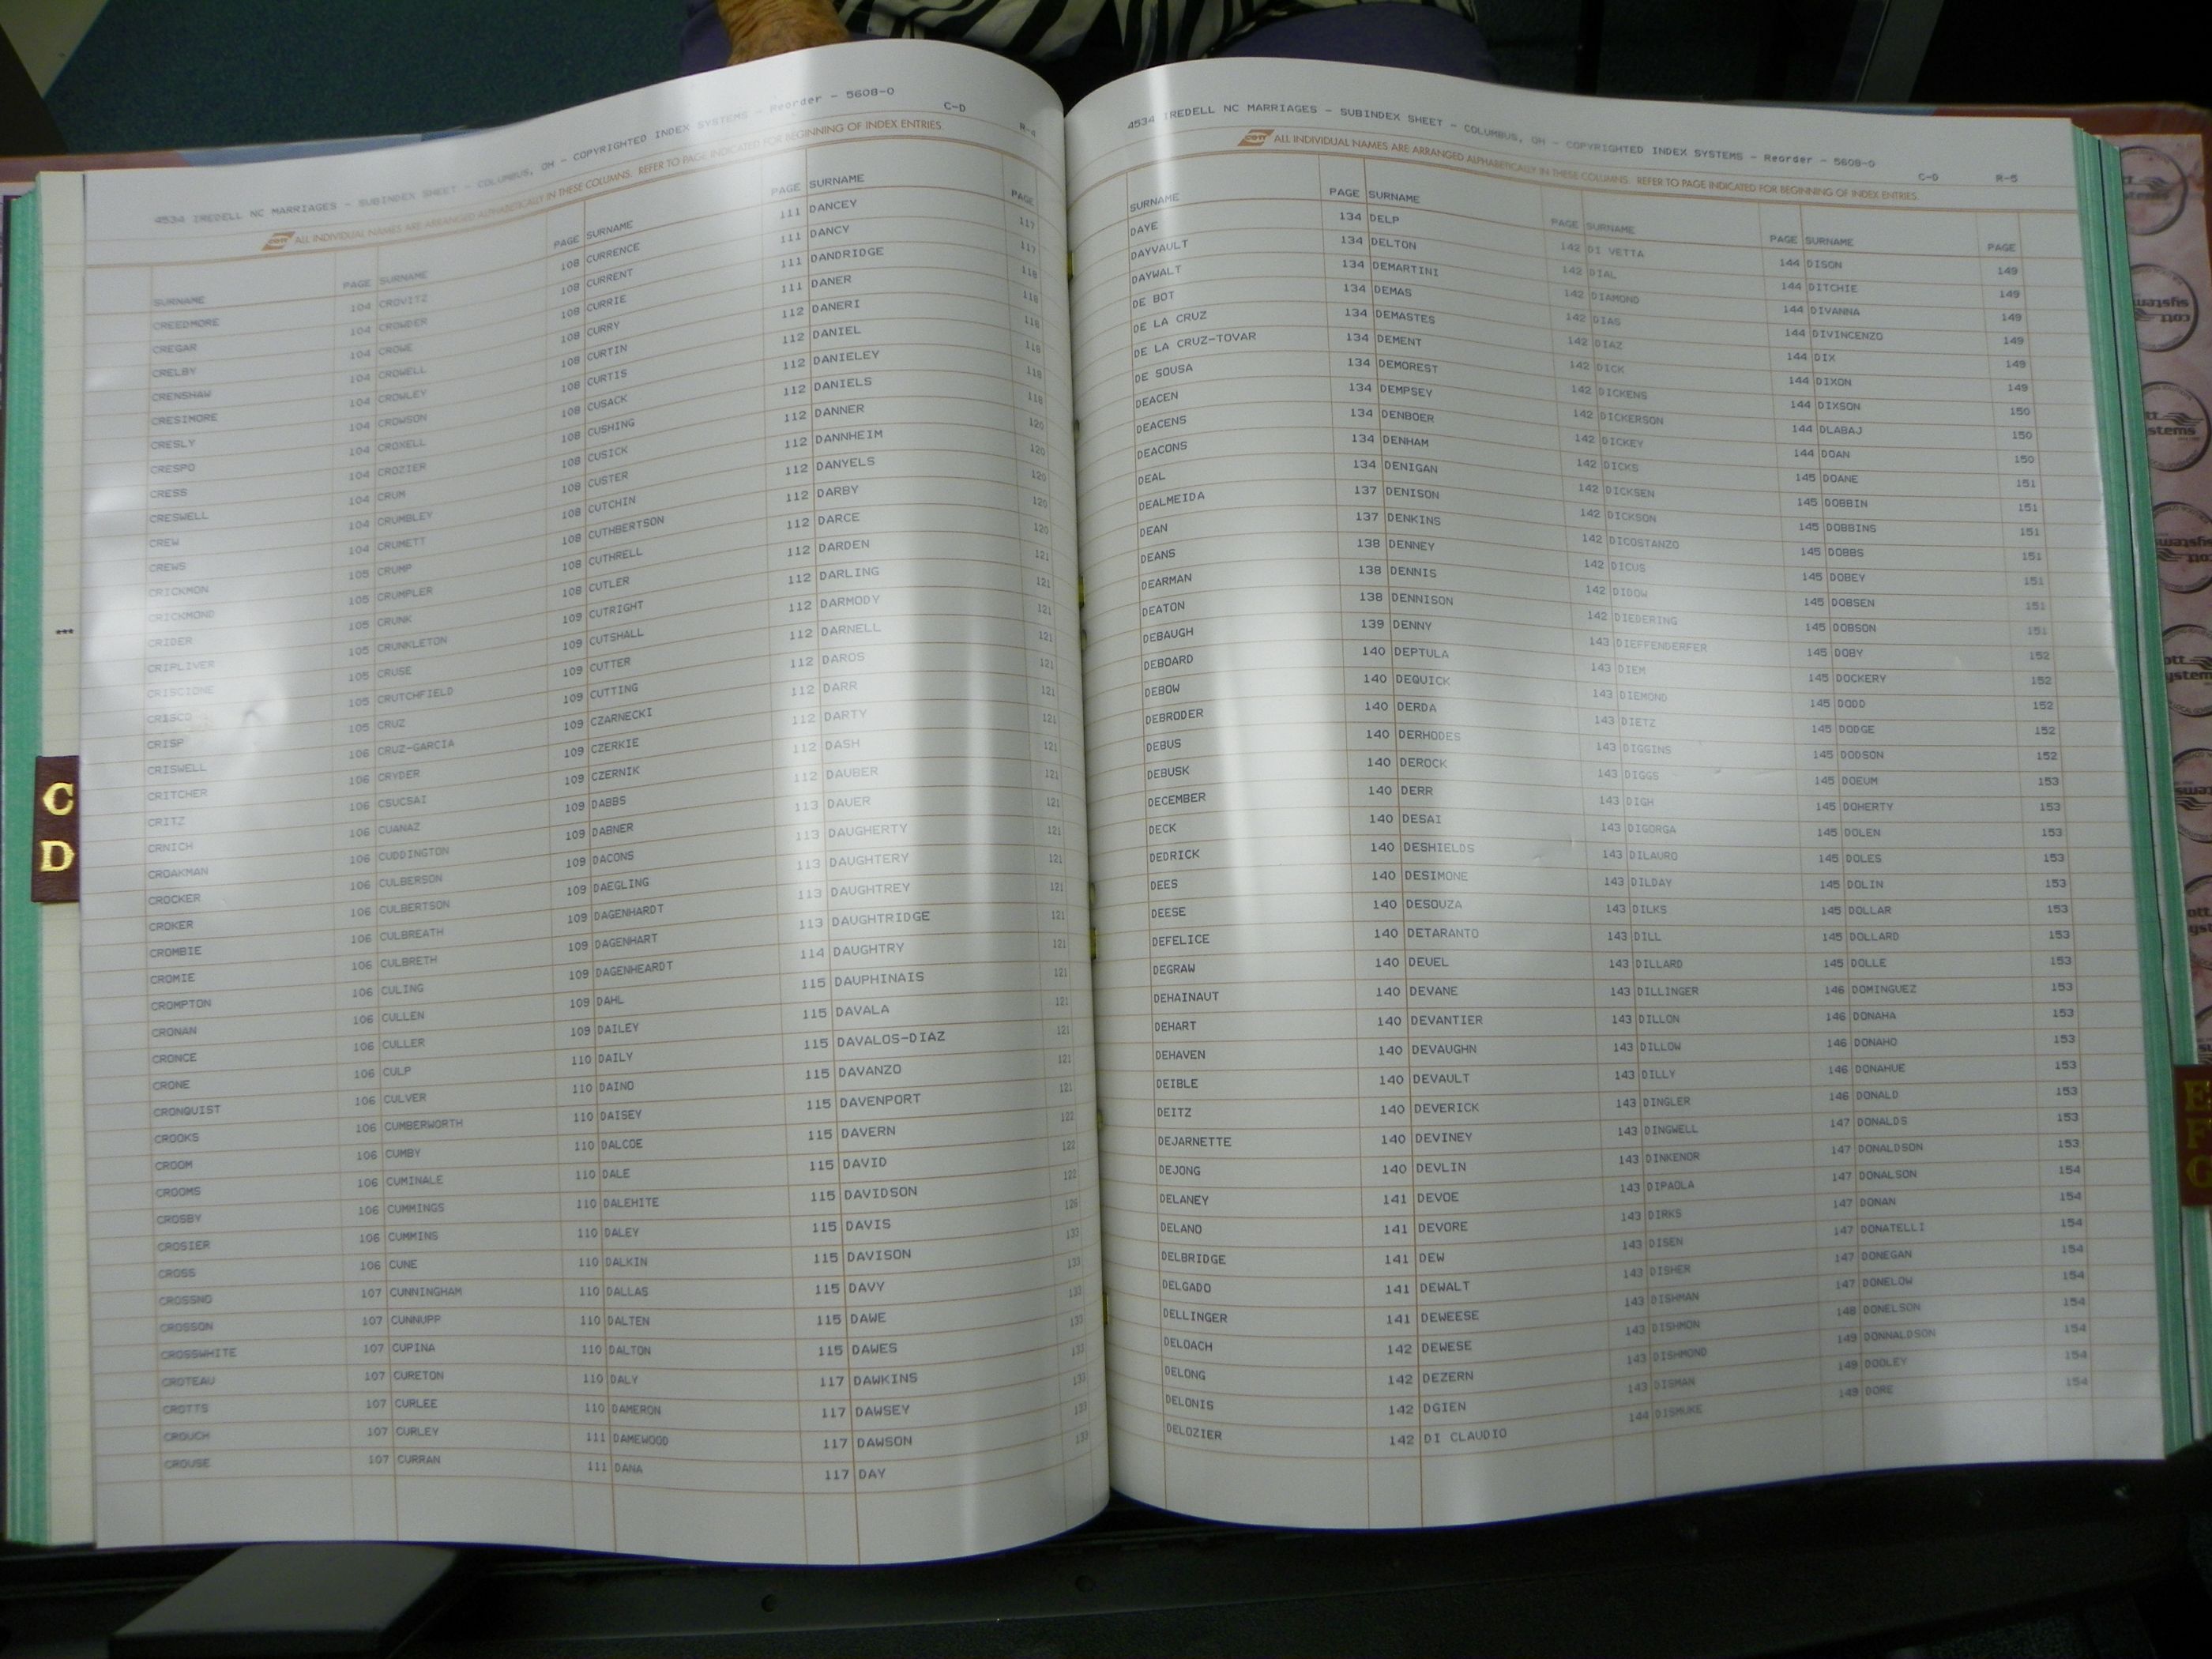 4534 IREDELL NC MARRIAGES - SUBINDEX SHEET - COLUMBUS, OH - COPYRIGHTED INDEX SYSTEMS - Reorder - 5608-0
C-D R-4
cott ALL INDIVIDUAL NAMES ARE ARRANGED ALPHABETICALLY IN THESE COLUMNS. REFER TO PAGE INDICATED FOR BEGINNING OF INDEX ENTRIES.
SURNAME PAGE
CREEDMORE 104
CREGAR 104
CRELBY 104
CRENSHAW 104
CRESIMORE 104
CRESLY 104
CRESPO 104
CRESS 104
CRESWELL 104
CREW 104
CREWS 104
CRICKMON 105
CRICKMOND 105
CRIDER 105
CRIPLIVER 105
CRISCIONE 105
CRISCO 105
CRISP 105
CRISWELL 106
CRITCHER 106
CRITZ 106
CRNICH 106
CROAKMAN 106
CROCKER 106
CROKER 106
CROMBIE 106
CROMIE 106
CROMPTON 106
CRONAN 106
CRONCE 106
CRONE 106
CRONQUIST 106
CROOKS 106
CROOM 106
CROOMS 106
CROSBY 106
CROSIER 106
CROSS 106
CROSSNO 107
CROSSON 107
CROSSWHITE 107
CROTEAU 107
CROTTS 107
CROUCH 107
CROUSE 107
SURNAME PAGE
CROVITZ 108
CROWDER 108
CROWE 108
CROWELL 108
CROWLEY 108
CROWSON 108
CROXELL 108
CROZIER 108
CRUM 108
CRUMBLEY 108
CRUMETT 108
CRUMP 108
CRUMPLER 108
CRUNK 109
CRUNKLETON 109
CRUSE 109
CRUTCHFIELD 109
CRUZ 109
CRUZ-GARCIA 109
CRYDER 109
CSUCSAI 109
CUANAZ 109
CUDDINGTON 109
CULBERSON 109
CULBERTSON 109
CULBREATH 109
CULBRETH 109
CULING 109
CULLEN 109
CULLER 110
CULP 110
CULVER 110
CUMBERWORTH 110
CUMBY 110
CUMINALE 110
CUMMINGS 110
CUMMINS 110
CUNE 110
CUNNINGHAM 110
CUNNUPP 110
CUPINA 110
CURETON 110
CURLEE 110
CURLEY 111
CURRAN 111
SURNAME PAGE
CURRENCE 111
CURRENT 111
CURRIE 111
CURRY 111
CURTIN 112
CURTIS 112
CUSACK 112
CUSHING 112
CUSICK 112
CUSTER 112
CUTCHIN 112
CUTHBERTSON 112
CUTHRELL 112
CUTLER 112
CUTRIGHT 112
CUTSHALL 112
CUTTER 112
CUTTING 112
CZARNECKI 112
CZERKIE 112
CZERNIK 112
DABBS 112
DABNER 113
DACONS 113
DAEGLING 113
DAGENHARDT 113
DAGENHART 113
DAGENHEARDT 114
DAHL 115
DAILEY 115
DAILY 115
DAINO 115
DAISEY 115
DALCOE 115
DALE 115
DALEHITE 115
DALEY 115
DALKIN 115
DALLAS 115
DALTEN 115
DALTON 115
DALY 117
DAMERON 117
DAMEWOOD 117
DANA 117
SURNAME PAGE
DANCEY 117
DANCY 117
DANDRIDGE 118
DANER 118
DANERI 118
DANIEL 118
DANIELEY 118
DANIELS 118
DANNER 120
DANNHEIM 120
DANYELS 120
DARBY 120
DARCE 120
DARDEN 121
DARLING 121
DARMODY 121
DARNELL 121
DAROS 121
DARR 121
DARTY 121
DASH 121
DAUBER 121
DAUER 121
DAUGHERTY 121
DAUGHTERY 121
DAUGHTREY 121
DAUGHTRIDGE 121
DAUGHTRY 121
DAUPHINAIS 121
DAVALA 121
DAVALOS-DIAZ 121
DAVANZO 121
DAVENPORT 121
DAVERN 122
DAVID 122
DAVIDSON 122
DAVIS 126
DAVISON 133
DAVY 133
DAWE 133
DAWES 133
DAWKINS 133
DAWSEY 133
DAWSON 133
DAY 133
***
C
D
4534 IREDELL NC MARRIAGES - SUBINDEX SHEET - COLUMBUS, OH - COPYRIGHTED INDEX SYSTEMS - Reorder - 5608-0
C-D R-5
cott ALL INDIVIDUAL NAMES ARE ARRANGED ALPHABETICALLY IN THESE COLUMNS. REFER TO PAGE INDICATED FOR BEGINNING OF INDEX ENTRIES.
SURNAME PAGE
DAYE 134
DAYVAULT 134
DAYWALT 134
DE BOT 134
DE LA CRUZ 134
DE LA CRUZ-TOVAR 134
DE SOUSA 134
DEACEN 134
DEACENS 134
DEACONS 134
DEAL 134
DEALMEIDA 137
DEAN 137
DEANS 138
DEARMAN 138
DEATON 138
DEBAUGH 139
DEBOARD 140
DEBOW 140
DEBRODER 140
DEBUS 140
DEBUSK 140
DECEMBER 140
DECK 140
DEDRICK 140
DEES 140
DEESE 140
DEFELICE 140
DEGRAW 140
DEHAINAUT 140
DEHART 140
DEHAVEN 140
DEIBLE 140
DEITZ 140
DEJARNETTE 140
DEJONG 140
DELANEY 141
DELANO 141
DELBRIDGE 141
DELGADO 141
DELLINGER 141
DELOACH 142
DELONG 142
DELONIS 142
DELOZIER 142
SURNAME PAGE
DELP 142
DELTON 142
DEMARTINI 142
DEMAS 142
DEMASTES 142
DEMENT 142
DEMOREST 142
DEMPSEY 142
DENBOER 142
DENHAM 142
DENIGAN 142
DENISON 142
DENKINS 142
DENNEY 142
DENNIS 142
DENNISON 142
DENNY 143
DEPTULA 143
DEQUICK 143
DERDA 143
DERHODES 143
DEROCK 143
DERR 143
DESAI 143
DESHIELDS 143
DESIMONE 143
DESOUZA 143
DETARANTO 143
DEUEL 143
DEVANE 143
DEVANTIER 143
DEVAUGHN 143
DEVAULT 143
DEVERICK 143
DEVINEY 143
DEVLIN 143
DEVOE 143
DEVORE 143
DEW 143
DEWALT 143
DEWEESE 143
DEWESE 143
DEZERN 143
DGIEN 143
DI CLAUDIO 144
SURNAME PAGE
DI VETTA 144
DIAL 144
DIAMOND 144
DIAS 144
DIAZ 144
DICK 144
DICKENS 144
DICKERSON 144
DICKEY 144
DICKS 145
DICKSEN 145
DICKSON 145
DICOSTANZO 145
DICUS 145
DIDOW 145
DIEDERING 145
DIEFFENDERFER 145
DIEM 145
DIEMOND 145
DIETZ 145
DIGGINS 145
DIGGS 145
DIGH 145
DIGORGA 145
DILAURO 145
DILDAY 145
DILKS 145
DILL 145
DILLARD 145
DILLINGER 146
DILLON 146
DILLOW 146
DILLY 146
DINGLER 146
DINGWELL 147
DINKENOR 147
DIPAOLA 147
DIRKS 147
DISEN 147
DISHER 147
DISHMAN 147
DISHMON 148
DISHMOND 149
DISMAN 149
DISMUKE 149
SURNAME PAGE
DISON 149
DITCHIE 149
DIVANNA 149
DIVINCENZO 149
DIX 149
DIXON 149
DIXSON 150
DLABAJ 150
DOAN 150
DOANE 151
DOBBIN 151
DOBBINS 151
DOBBS 151
DOBEY 151
DOBSEN 151
DOBSON 151
DOBY 152
DOCKERY 152
DODD 152
DODGE 152
DODSON 152
DOEUM 153
DOHERTY 153
DOLEN 153
DOLES 153
DOLIN 153
DOLLAR 153
DOLLARD 153
DOLLE 153
DOMINGUEZ 153
DONAHA 153
DONAHO 153
DONAHUE 153
DONALD 153
DONALDS 153
DONALDSON 153
DONALSON 154
DONAN 154
DONATELLI 154
DONEGAN 154
DONELOW 154
DONELSON 154
DONNALDSON 154
DOOLEY 154
DORE 154
E
F
G